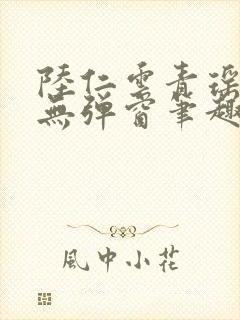 陸仁雲青瑤
無彈窗筆趣
風中小花